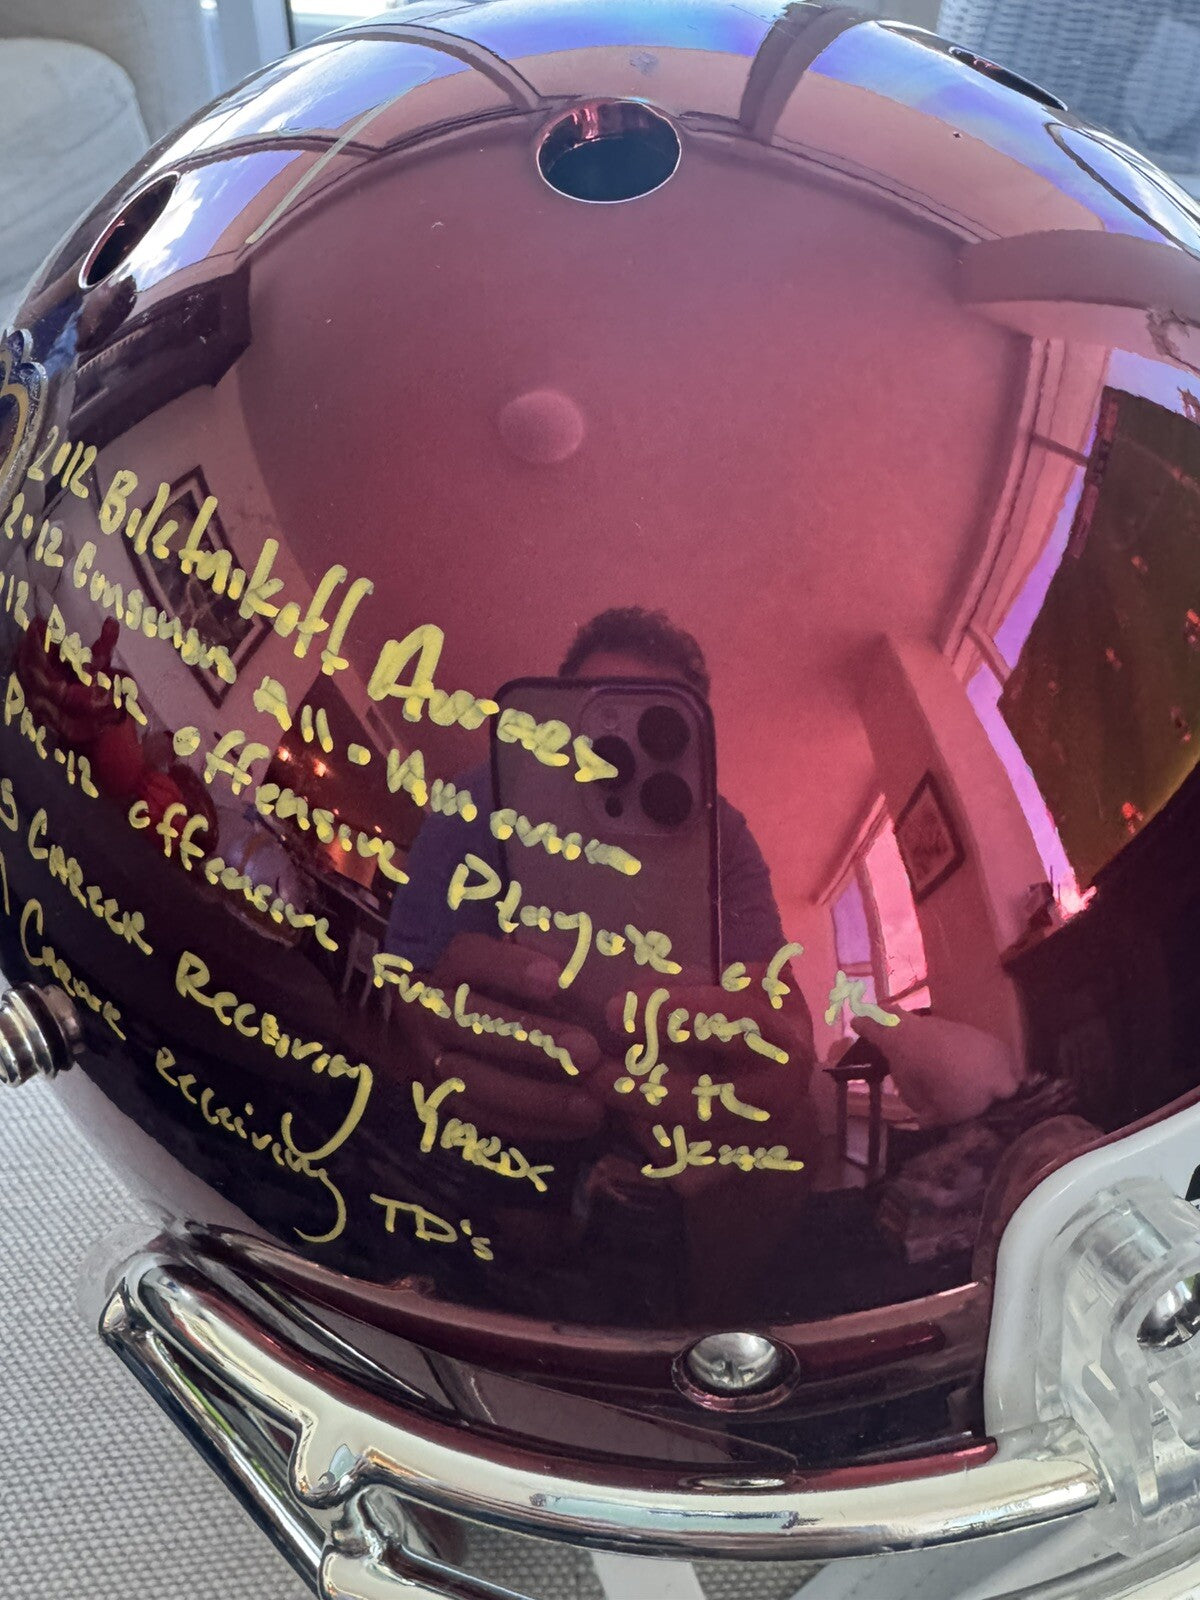 2012 Biletnikoff Award
2012 Consensus All-American
12 Pac-12 Offensive Player of the Year
Pac-12 Offensive Freshman of the Year
Career Receiving Yards
Career Receiving TD's